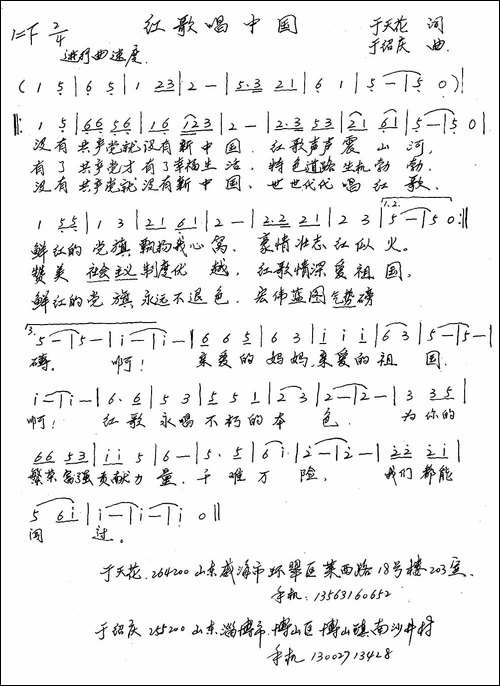 1=F 2/4 红歌唱中国 于天花 词
进行曲速度. 于绍庆 曲.
( 1 5 | 6 5 | 1 23 | 2 — | 5·3 21 | 6 1 | 5 — | 5 0 ) |
‖: 1 5 | 66 56 | 16 123 | 2 — | 2·3 53 | 21 61 | 5 — | 5 0 |
没有共产党就没有新中国. 红歌声声震山河,
有了共产党才有了幸福生活, 特色道路生机勃勃.
没有共产党就没有新中国. 世世代代唱红歌.
1 55 | 1 3 | 21 61 | 2 — | 2·2 21 | 2 3 | 1.2. 5 — | 5 0 :‖
鲜红的党旗飘扬我心窝, 豪情壮志红似火。
赞美社会主义制度优越, 红歌情深爱祖国。
鲜红的党旗永远不退色. 宏伟蓝图气势磅
3. 5 — | 5 — | i — | i — | 6 6 5 | 6 3 | i i i | 6 3 | 5 — | 5 — |
礴. 啊! 亲爱的妈妈,亲爱的祖国.
i — | i — | 6·6 | 5 3 | 5 5 1 | 2 3 | 2 — | 2 — | 3 35 |
啊! 红歌永唱不朽的本色. 为你的
66 53 | ii 5 | 6 — | 5·5 | 6 i | 2 — | 2 — | 22 2i |
繁荣富强贡献力量, 千难万险, 我们都能
5 6i | i — | i — | i 0 ‖
闯过。
于天花. 264200 山东威海市环翠区莱西路18号楼203室.
手机: 13563160652
于绍庆 255200 山东淄博市博山区博山镇南沙井村
手机 13002713428